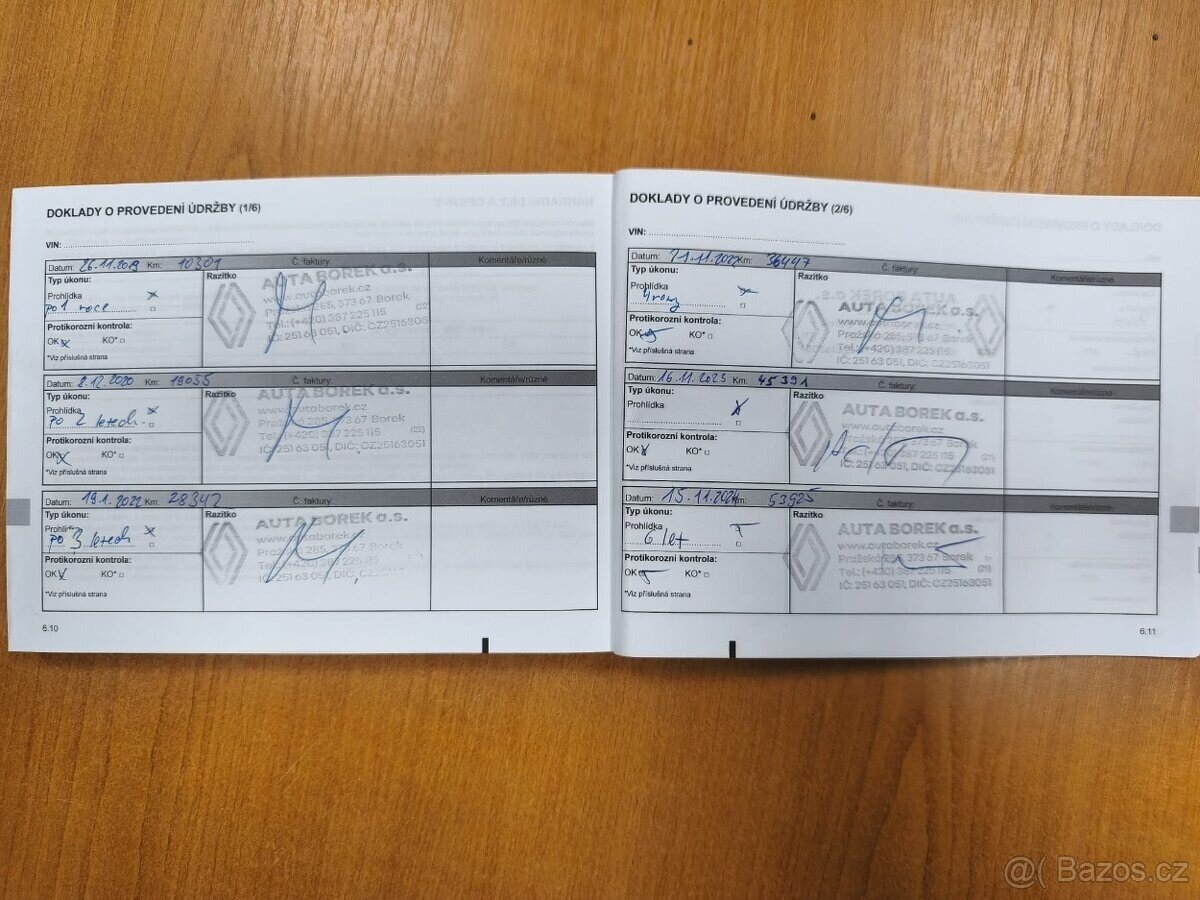 DOKLADY O PROVEDENÍ ÚDRŽBY (1/6)
VIN:
Datum: 26.11.2019 Km: 10301 Č. faktury:
Typ úkonu:
Razítko
Prohlídka
po 1 roce
Protikorozní kontrola:
OK KO*
*Viz příslušná strana
AUTA BOREK a.s.
www.autaborek.cz
Pražská 285, 373 67 Borek
(22)
Tel.: (+420) 387 225 115
IČ: 251 63 051, DIČ: CZ25163051
Datum: 8.12.2020 Km: 19055 Č. faktury: Komentáře/různé
Typ úkonu:
Razítko
Prohlídka
po 2 letech
Protikorozní kontrola:
OK KO*
*Viz příslušná strana
AUTA BOREK a.s.
www.autaborek.cz
Pražská 285, 373 67 Borek
Tel.: (+420) 387 225 115
(22)
IČ: 251 63 051, DIČ: CZ25163051
Datum: 19.1.2022 Km: 28347 Č. faktury: Komentáře/různé
Typ úkonu:
Razítko
Prohlídka
po 3 letech
Protikorozní kontrola:
OK KO*
*Viz příslušná strana
AUTA BOREK a.s.
www.autaborek.cz
Pražská 285, 373 67 Borek
Tel.: (+420) 387 225 115
IČ: 251 63 051, DIČ: CZ25163051
6.10
DOKLADY O PROVEDENÍ ÚDRŽBY (2/6)
VIN:
Datum: Km: 36447 Č. faktury: Komentáře/různé
Typ úkonu:
Razítko
Prohlídka
4 roky
Protikorozní kontrola:
OK KO*
*Viz příslušná strana
AUTA BOREK a.s.
www.autaborek.cz
Pražská 285, 373 67 Borek
Tel.: (+420) 387 225 115
IČ: 251 63 051, DIČ: CZ25163051
Datum: 16.11.2023 Km: 45391 Č. faktury: Komentáře/různé
Typ úkonu:
Razítko
Prohlídka
Protikorozní kontrola:
OK KO*
*Viz příslušná strana
AUTA BOREK a.s.
www.autaborek.cz
Pražská 285, 373 67 Borek
Tel.: (+420) 387 225 115
(21)
IČ: 251 63 051, DIČ: CZ25163051
Datum: 15.11.2024 Km: 53925 Č. faktury: Komentáře/různé
Typ úkonu:
Razítko
Prohlídka
6 let
Protikorozní kontrola:
OK KO*
*Viz příslušná strana
AUTA BOREK a.s.
www.autaborek.cz
Pražská 285, 373 67 Borek
Tel.: (+420) 387 225 115
(21)
IČ: 251 63 051, DIČ: CZ25163051
6.11
@( Bazos.cz